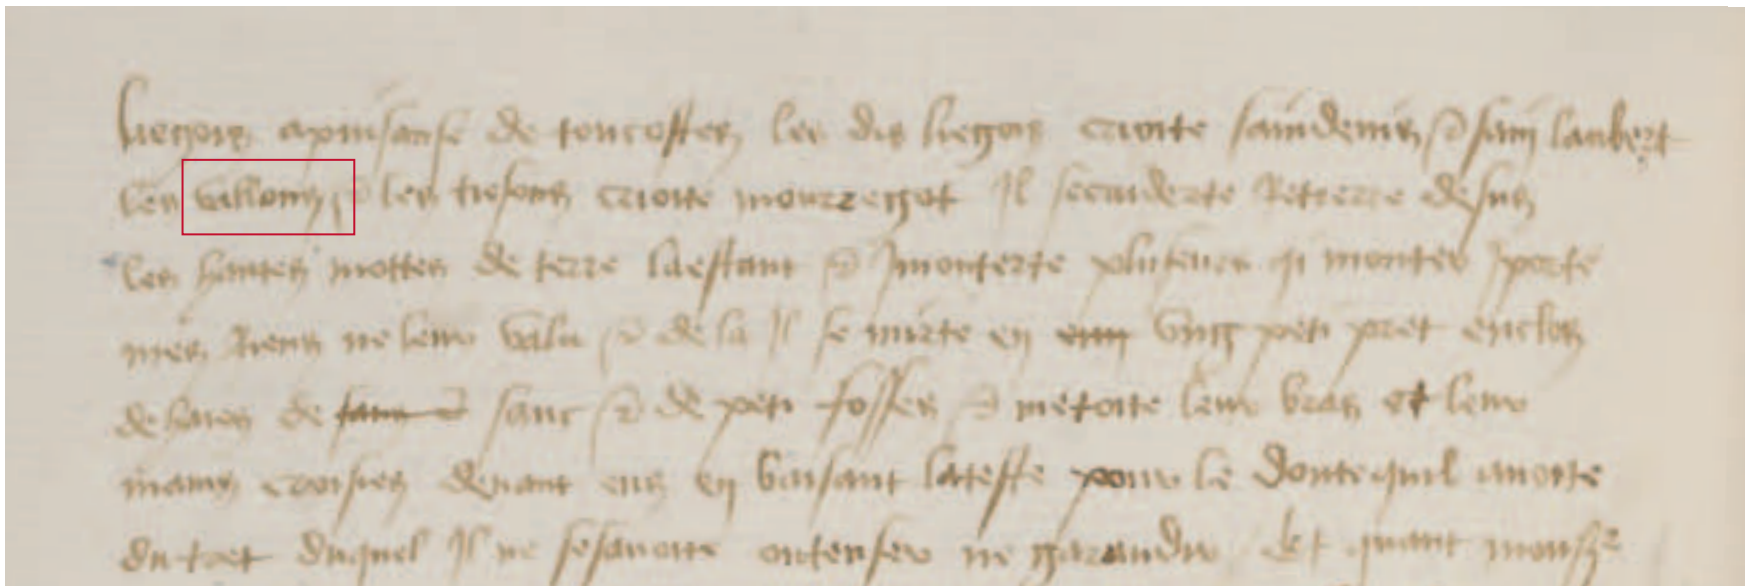 liegois apuisanse de tout costes les dis liegois crioite saindenis & sain lanbert
les vallons & les tiesons crioite monrregot Il secuiderte Retrerre desus
les hautes mottes de terre laestant & Imonterte pluseurs qi monter porte
mes Riens ne leur valu & de la Il se mirte en ung peti pret enclos
de haies de sanc & de peti fosses & metoite leur bras et leur
mains croisies devant eus en baisant lateste pour le doute quil avoite
du tret duquel Il ne sesavoite ne garandir Et quant mons